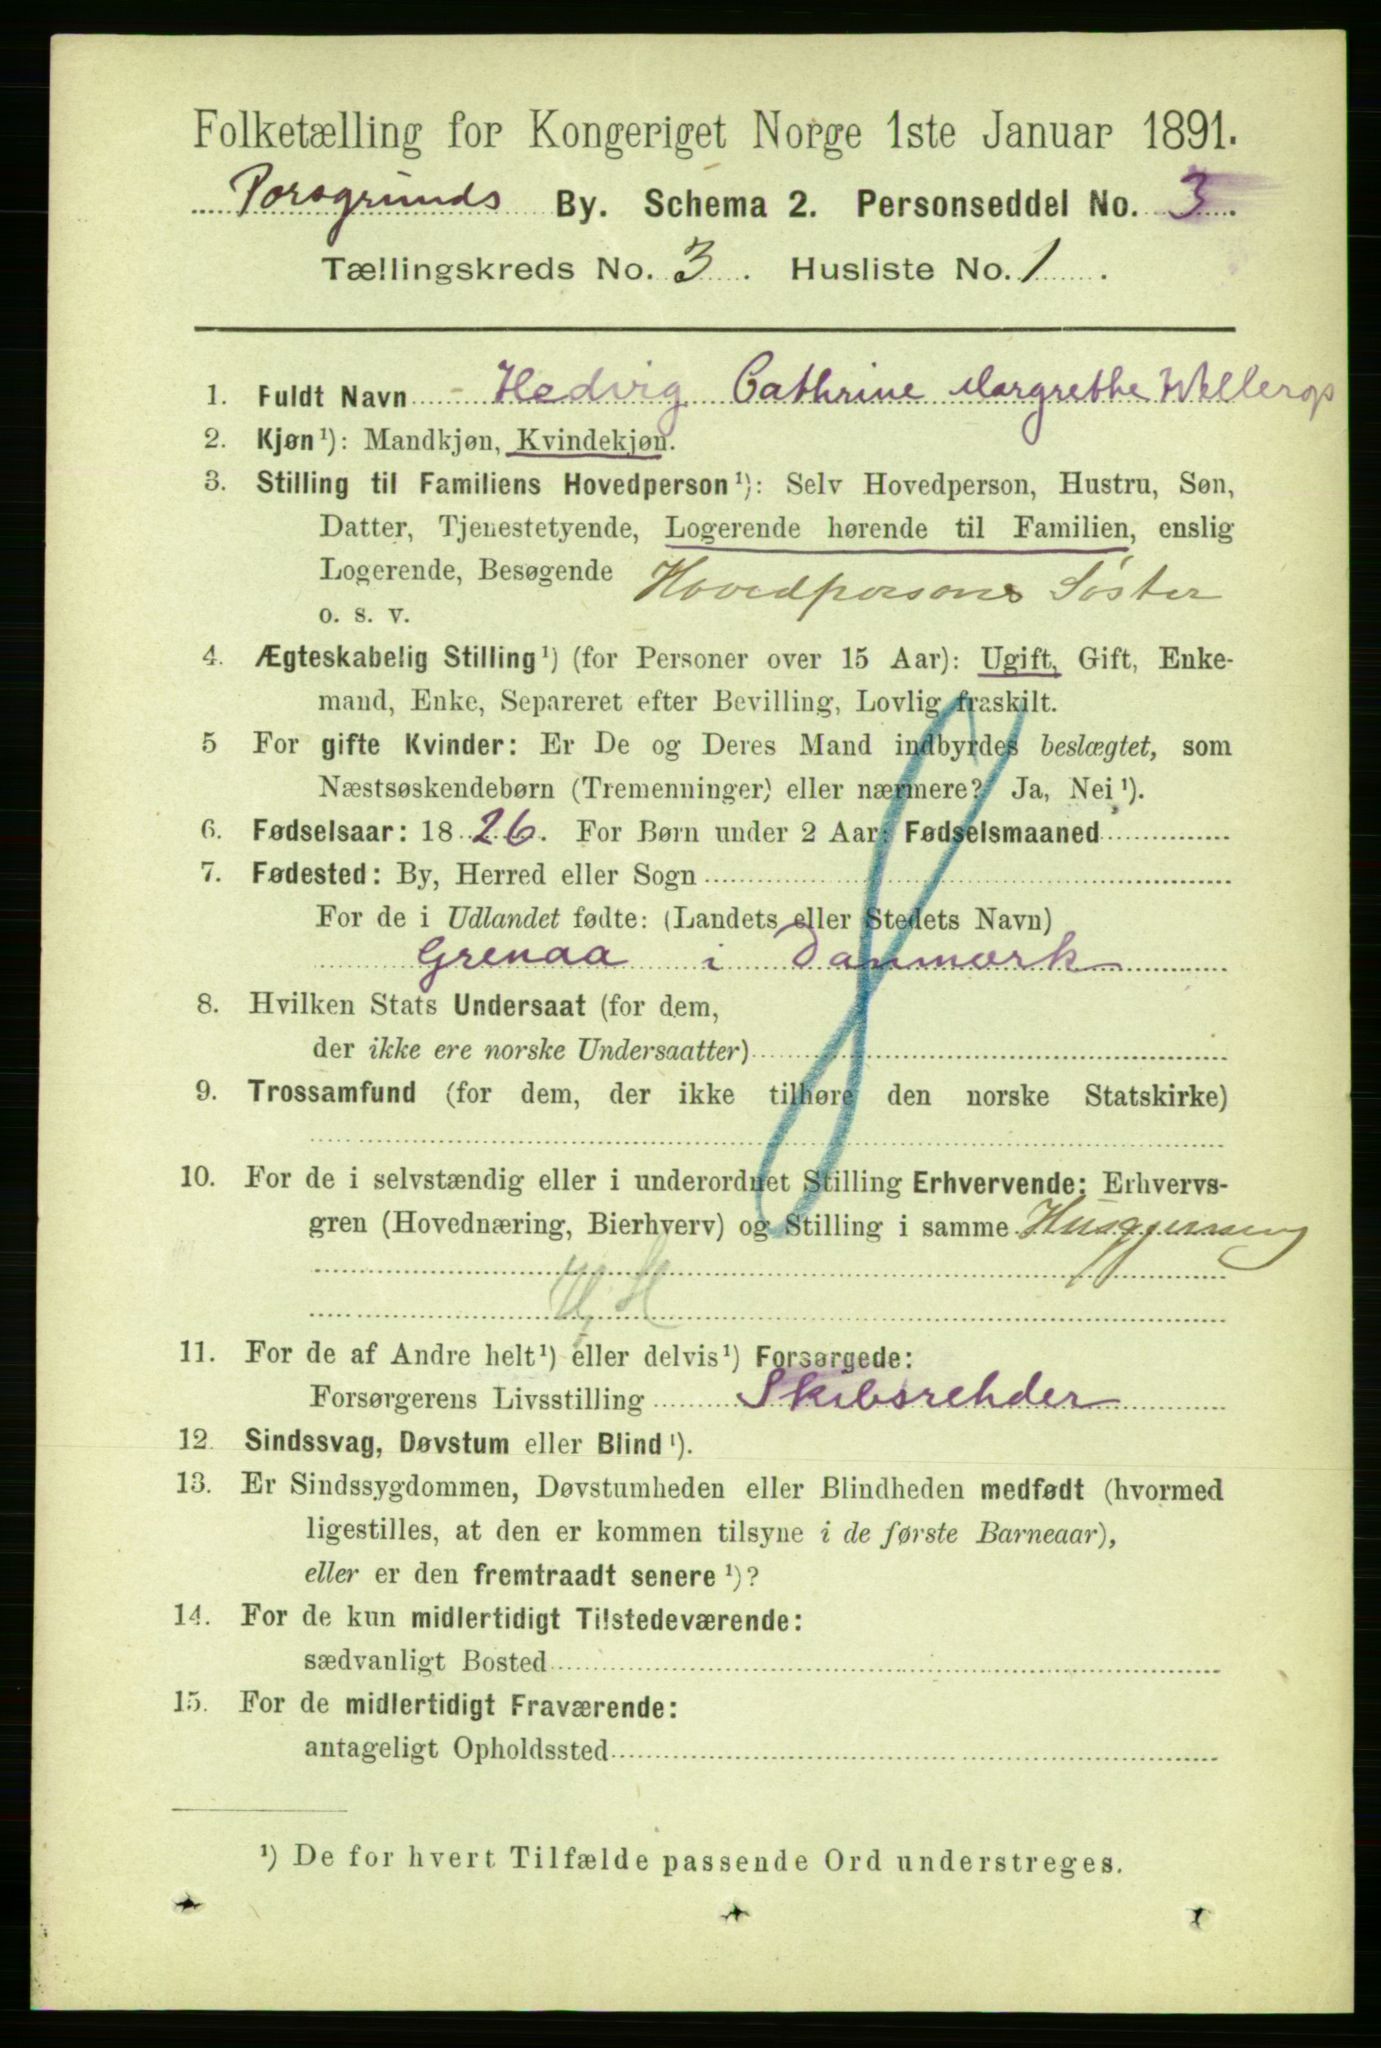 Folketælling for Kongeriget Norge 1ste Januar 1891.
Porsgrunds By. Schema 2. Personseddel No. 3.
Tællingskreds No. 3. Husliste No. 1.
1. Fuldt Navn Hedvig Cathrine Margrethe
2. Kjøn¹): Mandkjøn, Kvindekjøn.
3. Stilling til Familiens Hovedperson¹): Selv Hovedperson, Hustru, Søn,
Datter, Tjenestetyende, Logerende hørende til Familien, enslig
Logerende, Besøgende Hovedpersons Søster
o. s. v.
4. Ægteskabelig Stilling¹) (for Personer over 15 Aar): Ugift, Gift, Enke-
mand, Enke, Separeret efter Bevilling, Lovlig fraskilt.
5 For gifte Kvinder: Er De og Deres Mand indbyrdes beslægtet, som
Næstsøskendebørn (Tremenninger) eller nærmere? Ja, Nei¹).
6. Fødselsaar: 1826. For Børn under 2 Aar: Fødselsmaaned
7. Fødested: By, Herred eller Sogn
For de i Udlandet fødte: (Landets eller Stedets Navn)
Grenaa i Danmark
8. Hvilken Stats Undersaat (for dem,
der ikke ere norske Undersaatter)
9. Trossamfund (for dem, der ikke tilhøre den norske Statskirke)
10. For de i selvstændig eller i underordnet Stilling Erhvervende: Erhvervs-
gren (Hovednæring, Bierhverv) og Stilling i samme Husgjerning
11. For de af Andre helt¹) eller delvis¹) Forsørgede:
Forsørgerens Livsstilling Skibsrehder
12. Sindssvag, Døvstum eller Blind¹).
13. Er Sindssygdommen, Døvstumheden eller Blindheden medfødt (hvormed
ligestilles, at den er kommen tilsyne i de første Barneaar),
eller er den fremtraadt senere¹)?
14. For de kun midlertidigt Tilstedeværende:
sædvanligt Bosted
15. For de midlertidigt Fraværende:
antageligt Opholdssted
¹) De for hvert Tilfælde passende Ord understreges.